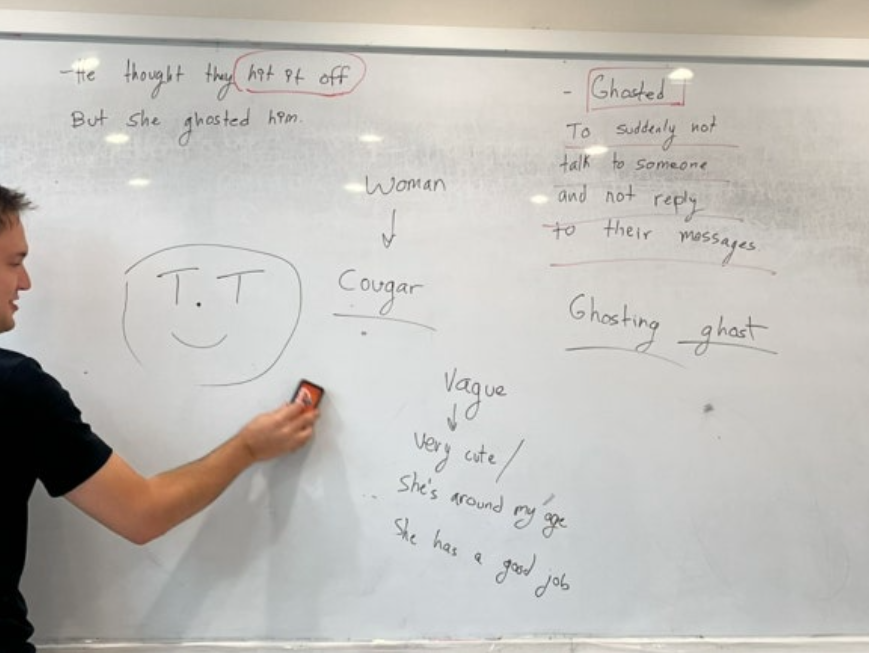 -He thought they hit it off
But she ghosted him.
Woman
Cougar
Vague
very cute /
She's around my age
She has a good job
- Ghosted
To suddenly not
talk to someone
and not reply
to their messages
Ghosting ghost
T.T